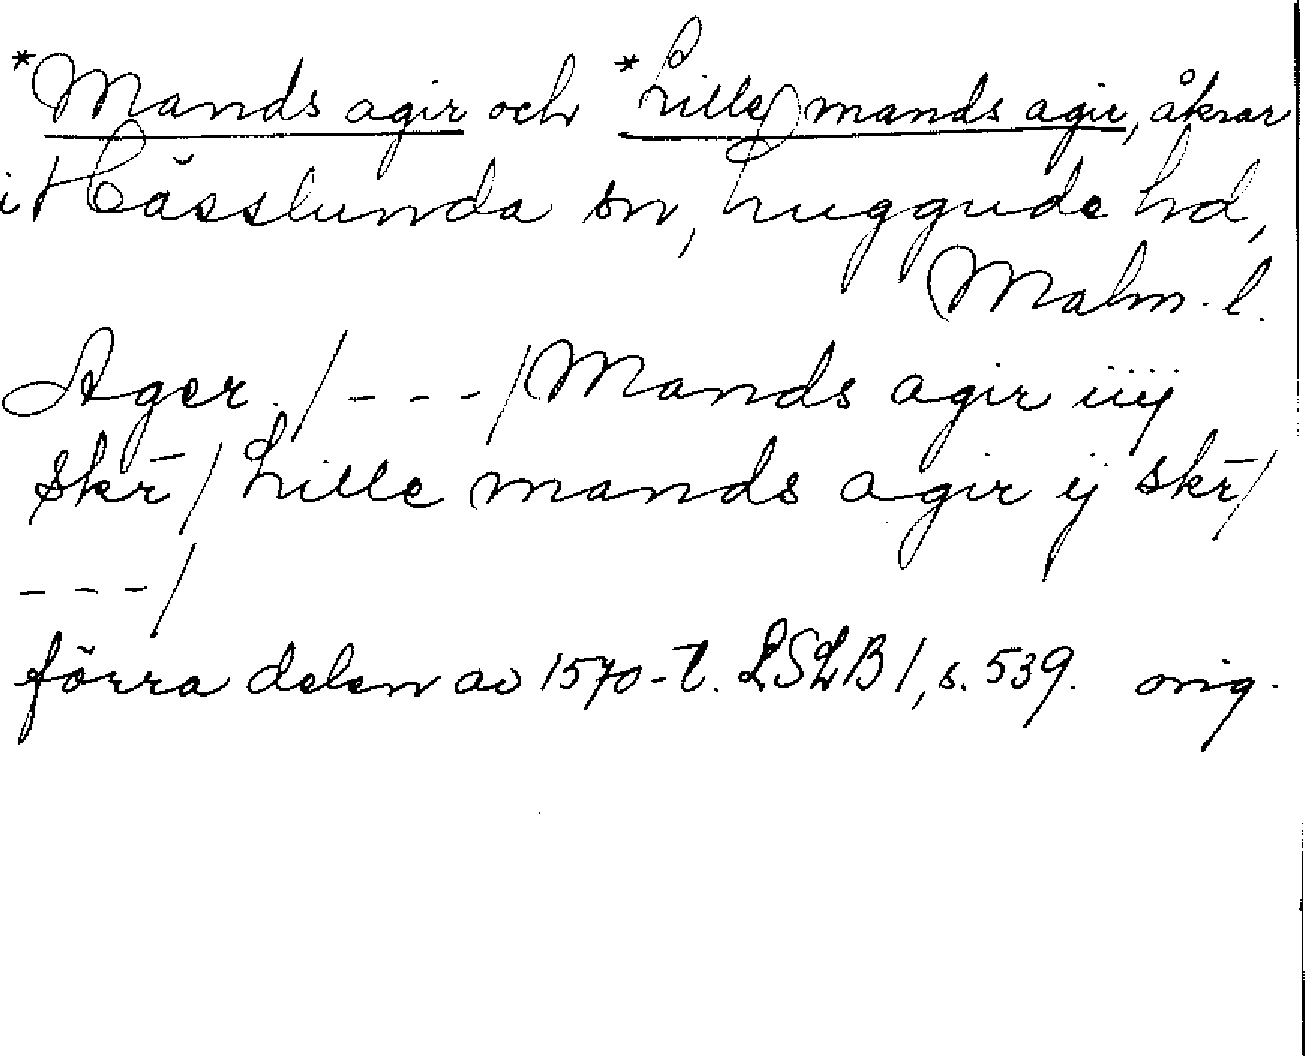 *Mands agir och *Lille mands agir, åkrar
i Hässlunda sn, Luggude hd,
Malm. l.
Ager. /---/ Mands agir iiij
skr̄ / Lille mands agir ij skr̄ /
---/
förra delen av 1570-t. LSLB 1, s. 539. orig.